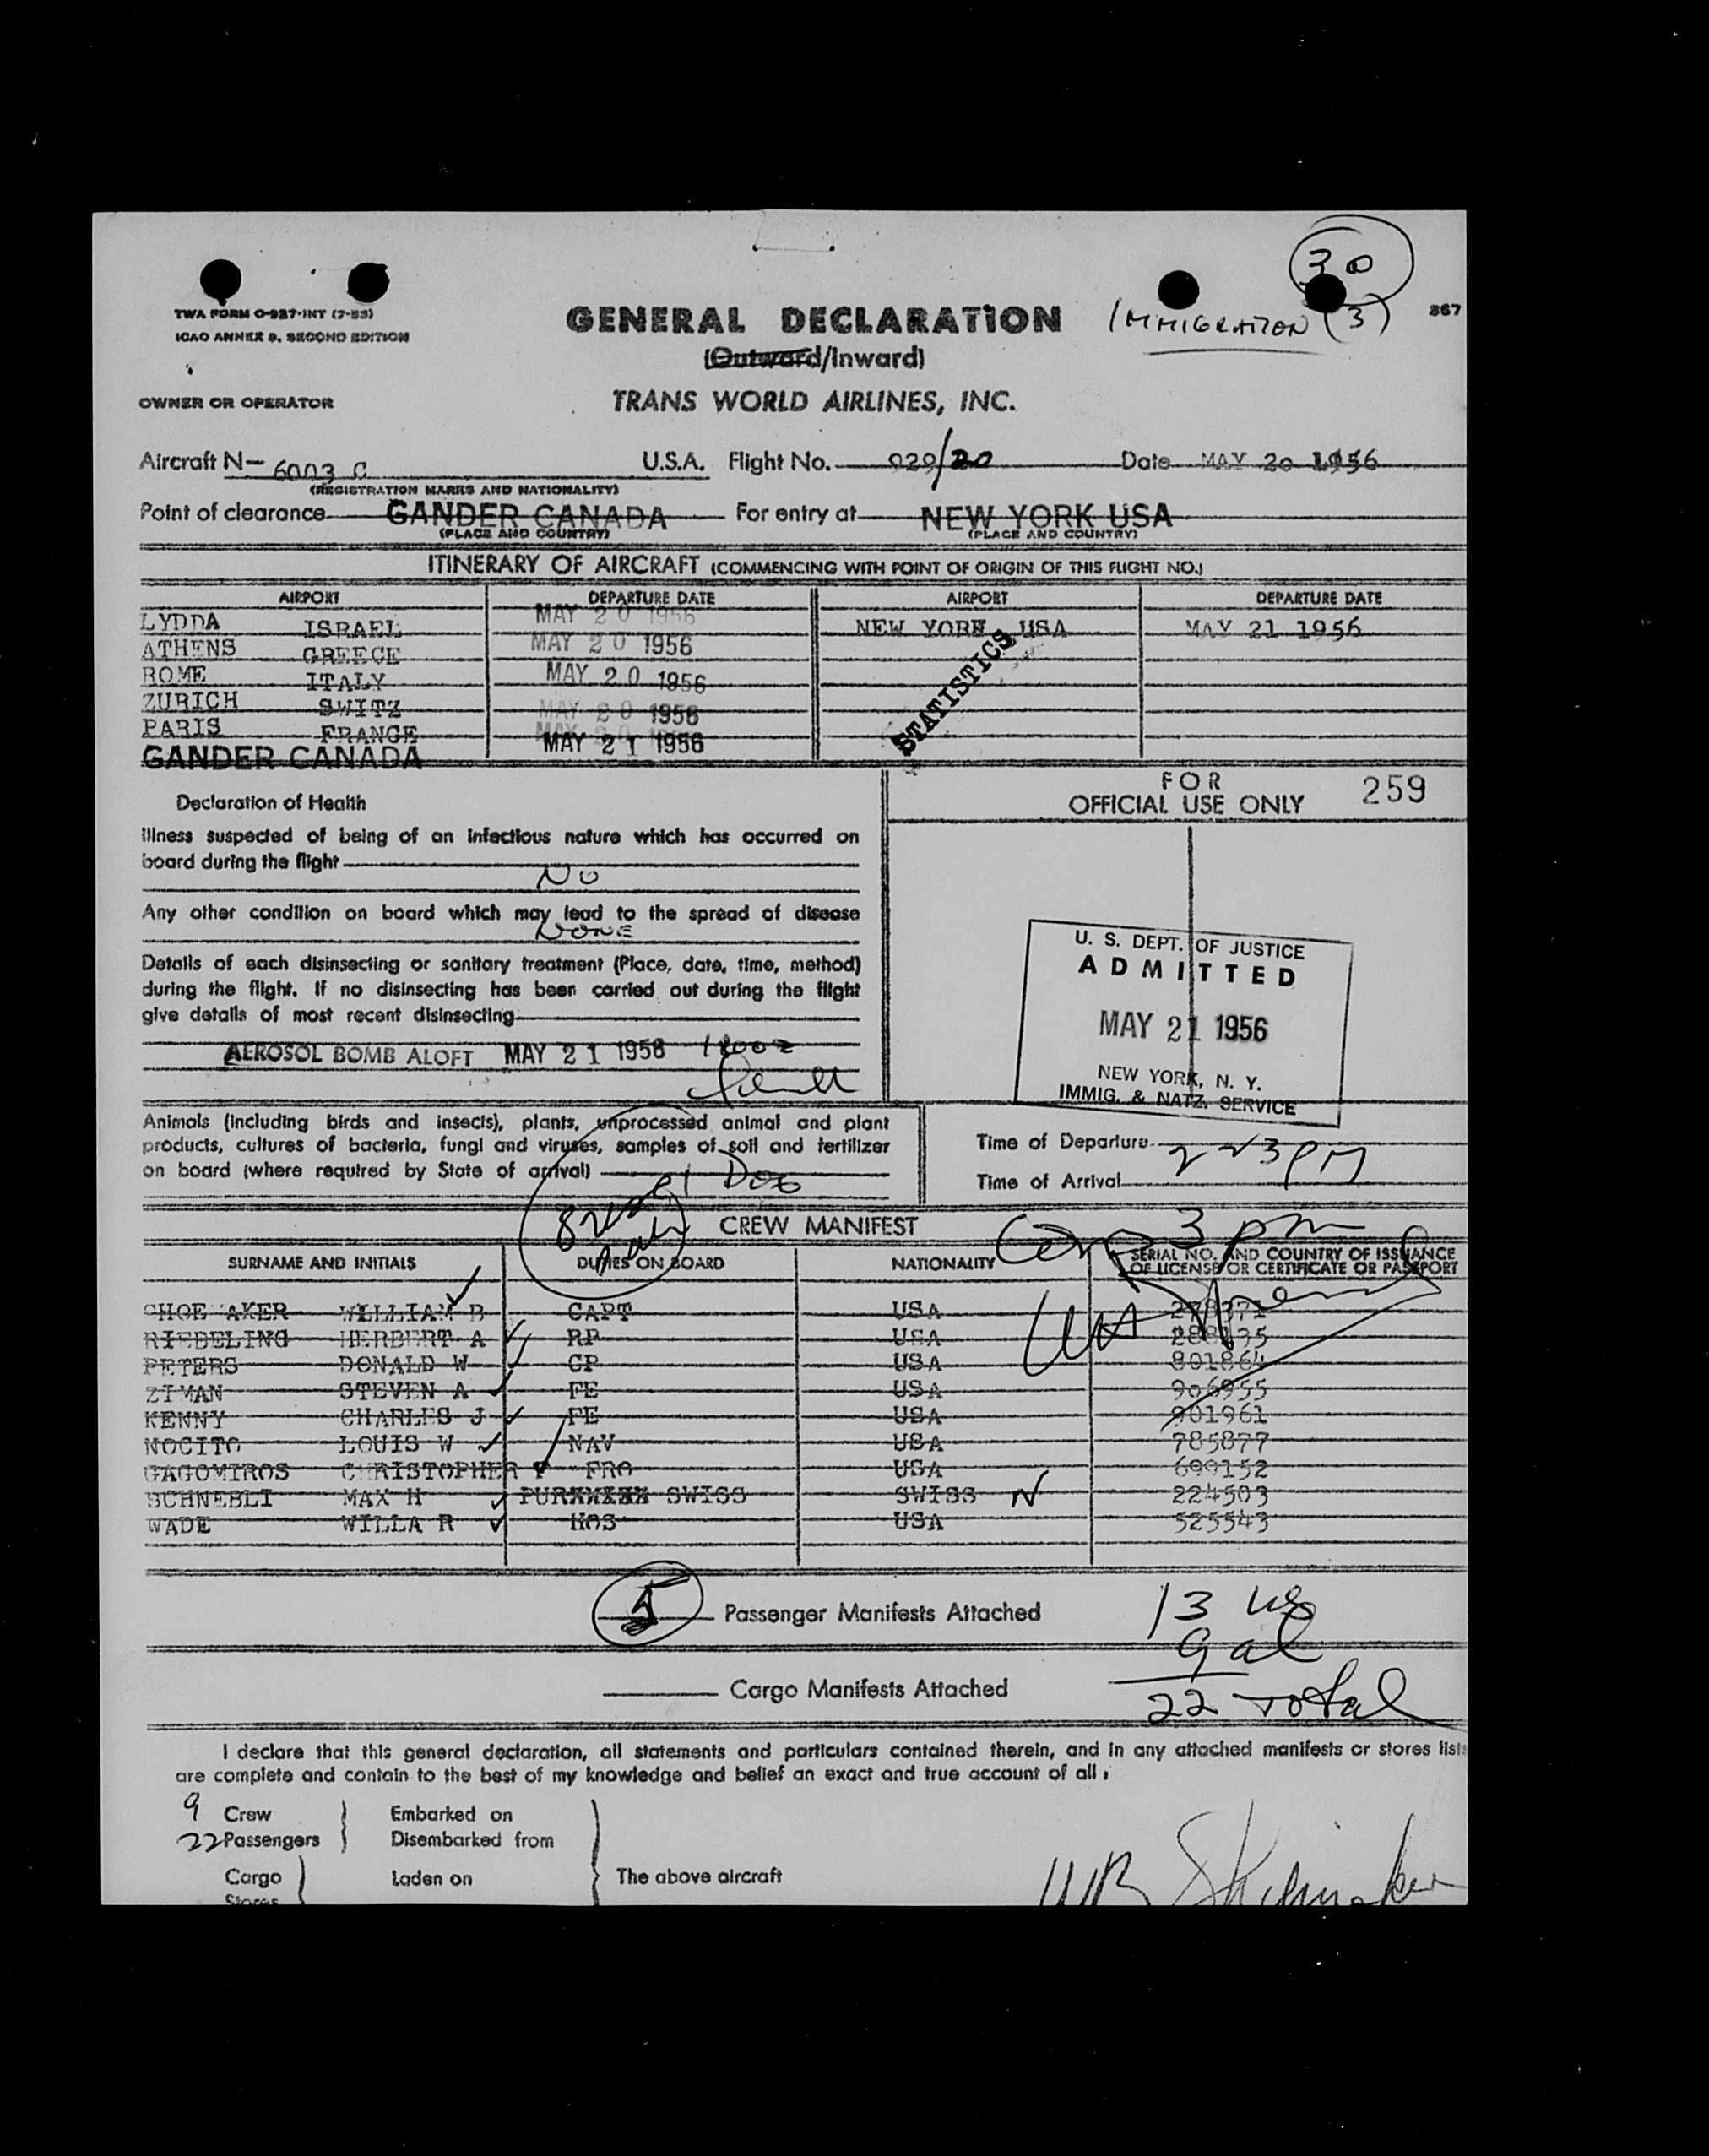 30
IMMIGRATION (3)
867
TWA FORM O-927-INT (7-53)
ICAO ANNEX 9, SECOND EDITION
GENERAL DECLARATION
(Outward/Inward)
OWNER OR OPERATOR
TRANS WORLD AIRLINES, INC.
Aircraft N- 6003 C U.S.A. Flight No. 929/20 Date MAY 20 1956
(REGISTRATION MARKS AND NATIONALITY)
Point of clearance GANDER CANADA For entry at NEW YORK USA
(PLACE AND COUNTRY) (PLACE AND COUNTRY)
ITINERARY OF AIRCRAFT (COMMENCING WITH POINT OF ORIGIN OF THIS FLIGHT NO.)
AIRPORT DEPARTURE DATE AIRPORT DEPARTURE DATE
LYDDA ISRAEL MAY 20 1956 NEW YORK USA MAY 21 1956
ATHENS GREECE MAY 20 1956
ROME ITALY MAY 20 1956
ZURICH SWITZ MAY 20 1956
PARIS FRANCE
GANDER CANADA MAY 21 1956
STATISTICS
Declaration of Health
FOR
OFFICIAL USE ONLY 259
Illness suspected of being of an infectious nature which has occurred on
board during the flight
No
Any other condition on board which may lead to the spread of disease
NONE
Details of each disinsecting or sanitary treatment (Place, date, time, method)
during the flight. If no disinsecting has been carried out during the flight
give details of most recent disinsecting
AEROSOL BOMB ALOFT MAY 21 1956 1800Z
U. S. DEPT. OF JUSTICE
ADMITTED
MAY 21 1956
NEW YORK, N. Y.
IMMIG. & NATZ. SERVICE
Animals (including birds and insects), plants, unprocessed animal and plant
products, cultures of bacteria, fungi and viruses, samples of soil and fertilizer
on board (where required by State of arrival) 1 DOG
Time of Departure
223 PM
Time of Arrival
CREW MANIFEST
3 pm
SURNAME AND INITIALS DUTIES ON BOARD NATIONALITY SERIAL NO. AND COUNTRY OF ISSUANCE
OF LICENSE OR CERTIFICATE OR PASSPORT
SHOE AKER WILLIAM B CAPT USA 278371
RIEBELING HERBERT A RP USA 288135
PETERS DONALD W CP USA 801864
ZIMAN STEVEN A FE USA 906955
KENNY CHARLES J FE USA 901961
NOCITO LOUIS W NAV USA 785877
GAGOMIROS CHRISTOPHER P FRO USA 699152
SCHNEBLI MAX H PURXXXXX SWISS SWISS N 224503
WADE WILLA R HOS USA 525543
5 Passenger Manifests Attached
13 US
9 al
Cargo Manifests Attached
22 Total
I declare that this general declaration, all statements and particulars contained therein, and in any attached manifests or stores list
are complete and contain to the best of my knowledge and belief an exact and true account of all:
9 Crew Embarked on
22 Passengers Disembarked from
Cargo Laden on The above aircraft
Stores
WB Shoemaker